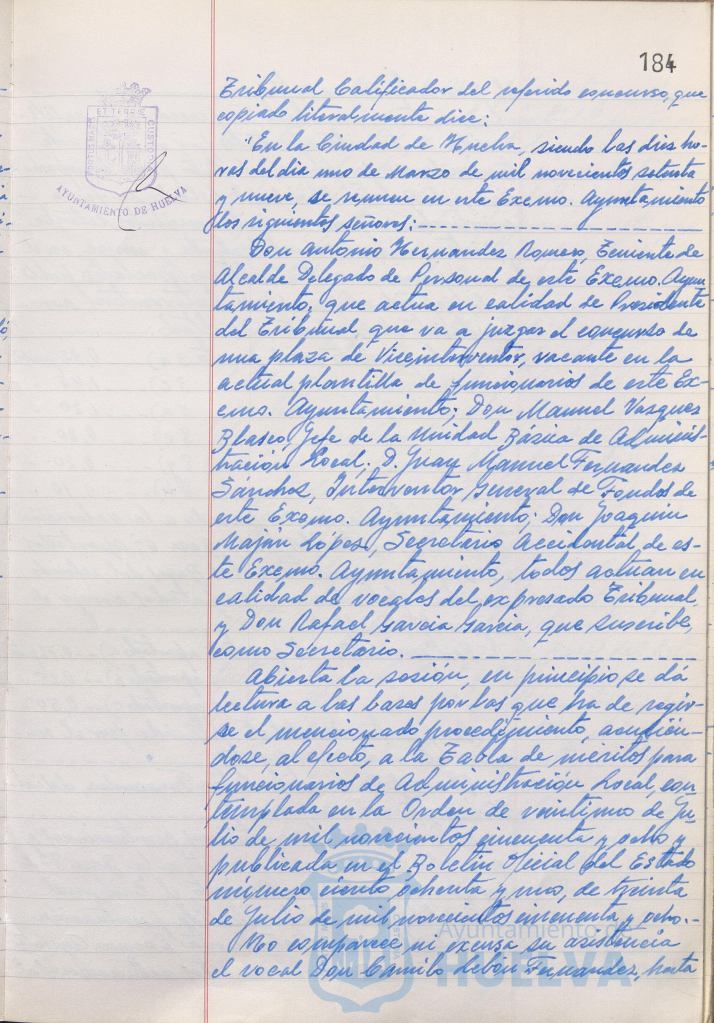 184
Tribunal Calificador del referido concurso, que
copiado literalmente dice:
"En la Ciudad de Huelva, siendo las diez ho-
ras del dia uno de Marzo de mil novecientos setenta
y nueve, se reunen en este Excmo. Ayuntamiento
los siguientes señores:
Don Antonio Hernandez Romero, Teniente de
Alcalde Delegado de Personal de este Excmo. Ayun-
tamiento, que actua en calidad de Presidente
del Tribunal que va a juzgar el concurso de
una plaza de Viceinterventor, vacante en la
actual plantilla de funcionarios de este Ex-
cmo. Ayuntamiento; Don Manuel Vazquez
Blasco Jefe de la Unidad Básica de Adminis-
tración Local; D. Juan Manuel Fernandez
Sánchez, Interventor General de Fondos de
este Excmo. Ayuntamiento; Don Joaquin
Maján López, Secretario Accidental de es-
te Excmo. Ayuntamiento, todos actuan en
calidad de vocales del expresado Tribunal
y Don Rafael Garcia Garcia, que suscribe,
como Secretario.
Abierta la sesión, en principio se dá
lectura a las bases por las que ha de regir-
se el mencionado procedimiento, acudién-
dose, al efecto, a la Tabla de méritos para
funcionarios de Administración Local, con
templada en la Orden de veintiuno de Ju
lio de mil novecientos cincuenta y ocho y
publicada en el Boletin Oficial del Estado
número ciento ochenta y uno, de treinta
de Julio de mil novecientos cincuenta y ocho.-
No comparece ni excusa su asistencia
el vocal Don Camilo Lebón Fernandez, hasta
AYUNTAMIENTO DE HUELVA
Ayuntamiento de
HUELVA